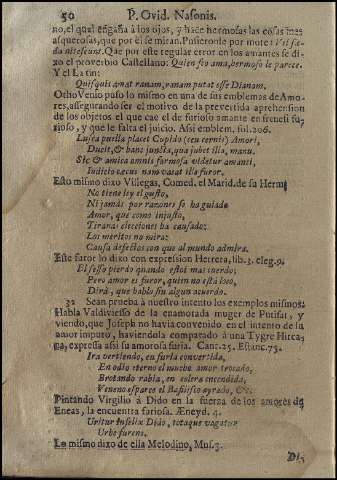 50 P. Ovid. Nasonis.
no, el qual engaña à los ojos, y hace hermosas las cosas mas
asquerosas, que por èl se miran. Pusieronle por mote: 
Que por este regular error en los amantes se di-
xo el proverbio Castellano: Quien feo ama, hermoso le parece.
Y el Latin:
Quisquis amat ranam, ranam putat esse Dianam.
Otho Venio puso lo mismo en una de sus emblemas de Amo-
res, assegurando ser el motivo de la pervertida aprehension
de los objetos el que cae el de furioso amante en frenesi fu-
rioso, y que le falta el juicio. Assi emblem. fol. 206.
Lusca puella placet Cupido (seu cernis) Amori,
Ducit, & hanc juncta, qua jubet illa, manu.
Sic & amica omnis formosa videtur amanti,
Iudicio cæcus nam vacat illa furor.
Esto mismo dixo Villegas, Comed. el Marid. de su Herm.
No tiene ley el gusto,
Ni jamàs por razones se ha guiado
Amor, que como injusto,
Tiranas elecciones ha causado:
Los meritos no mira;
Causa defectos con que al mundo admira.
Este furor lo dixo con expression Herrera, lib. 3. eleg. 9.
El sesso pierdo quando estoi mas cuerdo;
Pero amor es furor, quien no està loco,
Dirà, que hablo sin algun acuerdo.
32 Sean prueba à nuestro intento los exemplos mismos.
Habla Valdiviesso de la enamorada muger de Putifar, y
viendo, que Joseph no havia convenido en el intento de la
amor impuro, haviendola comparado à una Tygre Hirca-
na, expressa assi su amorosa furia. Canc. 25. Estanc. 75.
Ira vertiendo, en furia convertida,
En odio eterno el mucho amor trocado,
Brotando rabia, en colera encendida,
Veneno esparce el Basilisco ayrado, &c.
Pintando Virgilio à Dido en la fuerza de los amores de
Eneas, la encuentra furiosa. Æneyd. 4.
Uritur Infelix Dido, totaque vagatur
Urbe furens.
Lo mismo dixo de ella Melodino, Mus. 3.
Di-